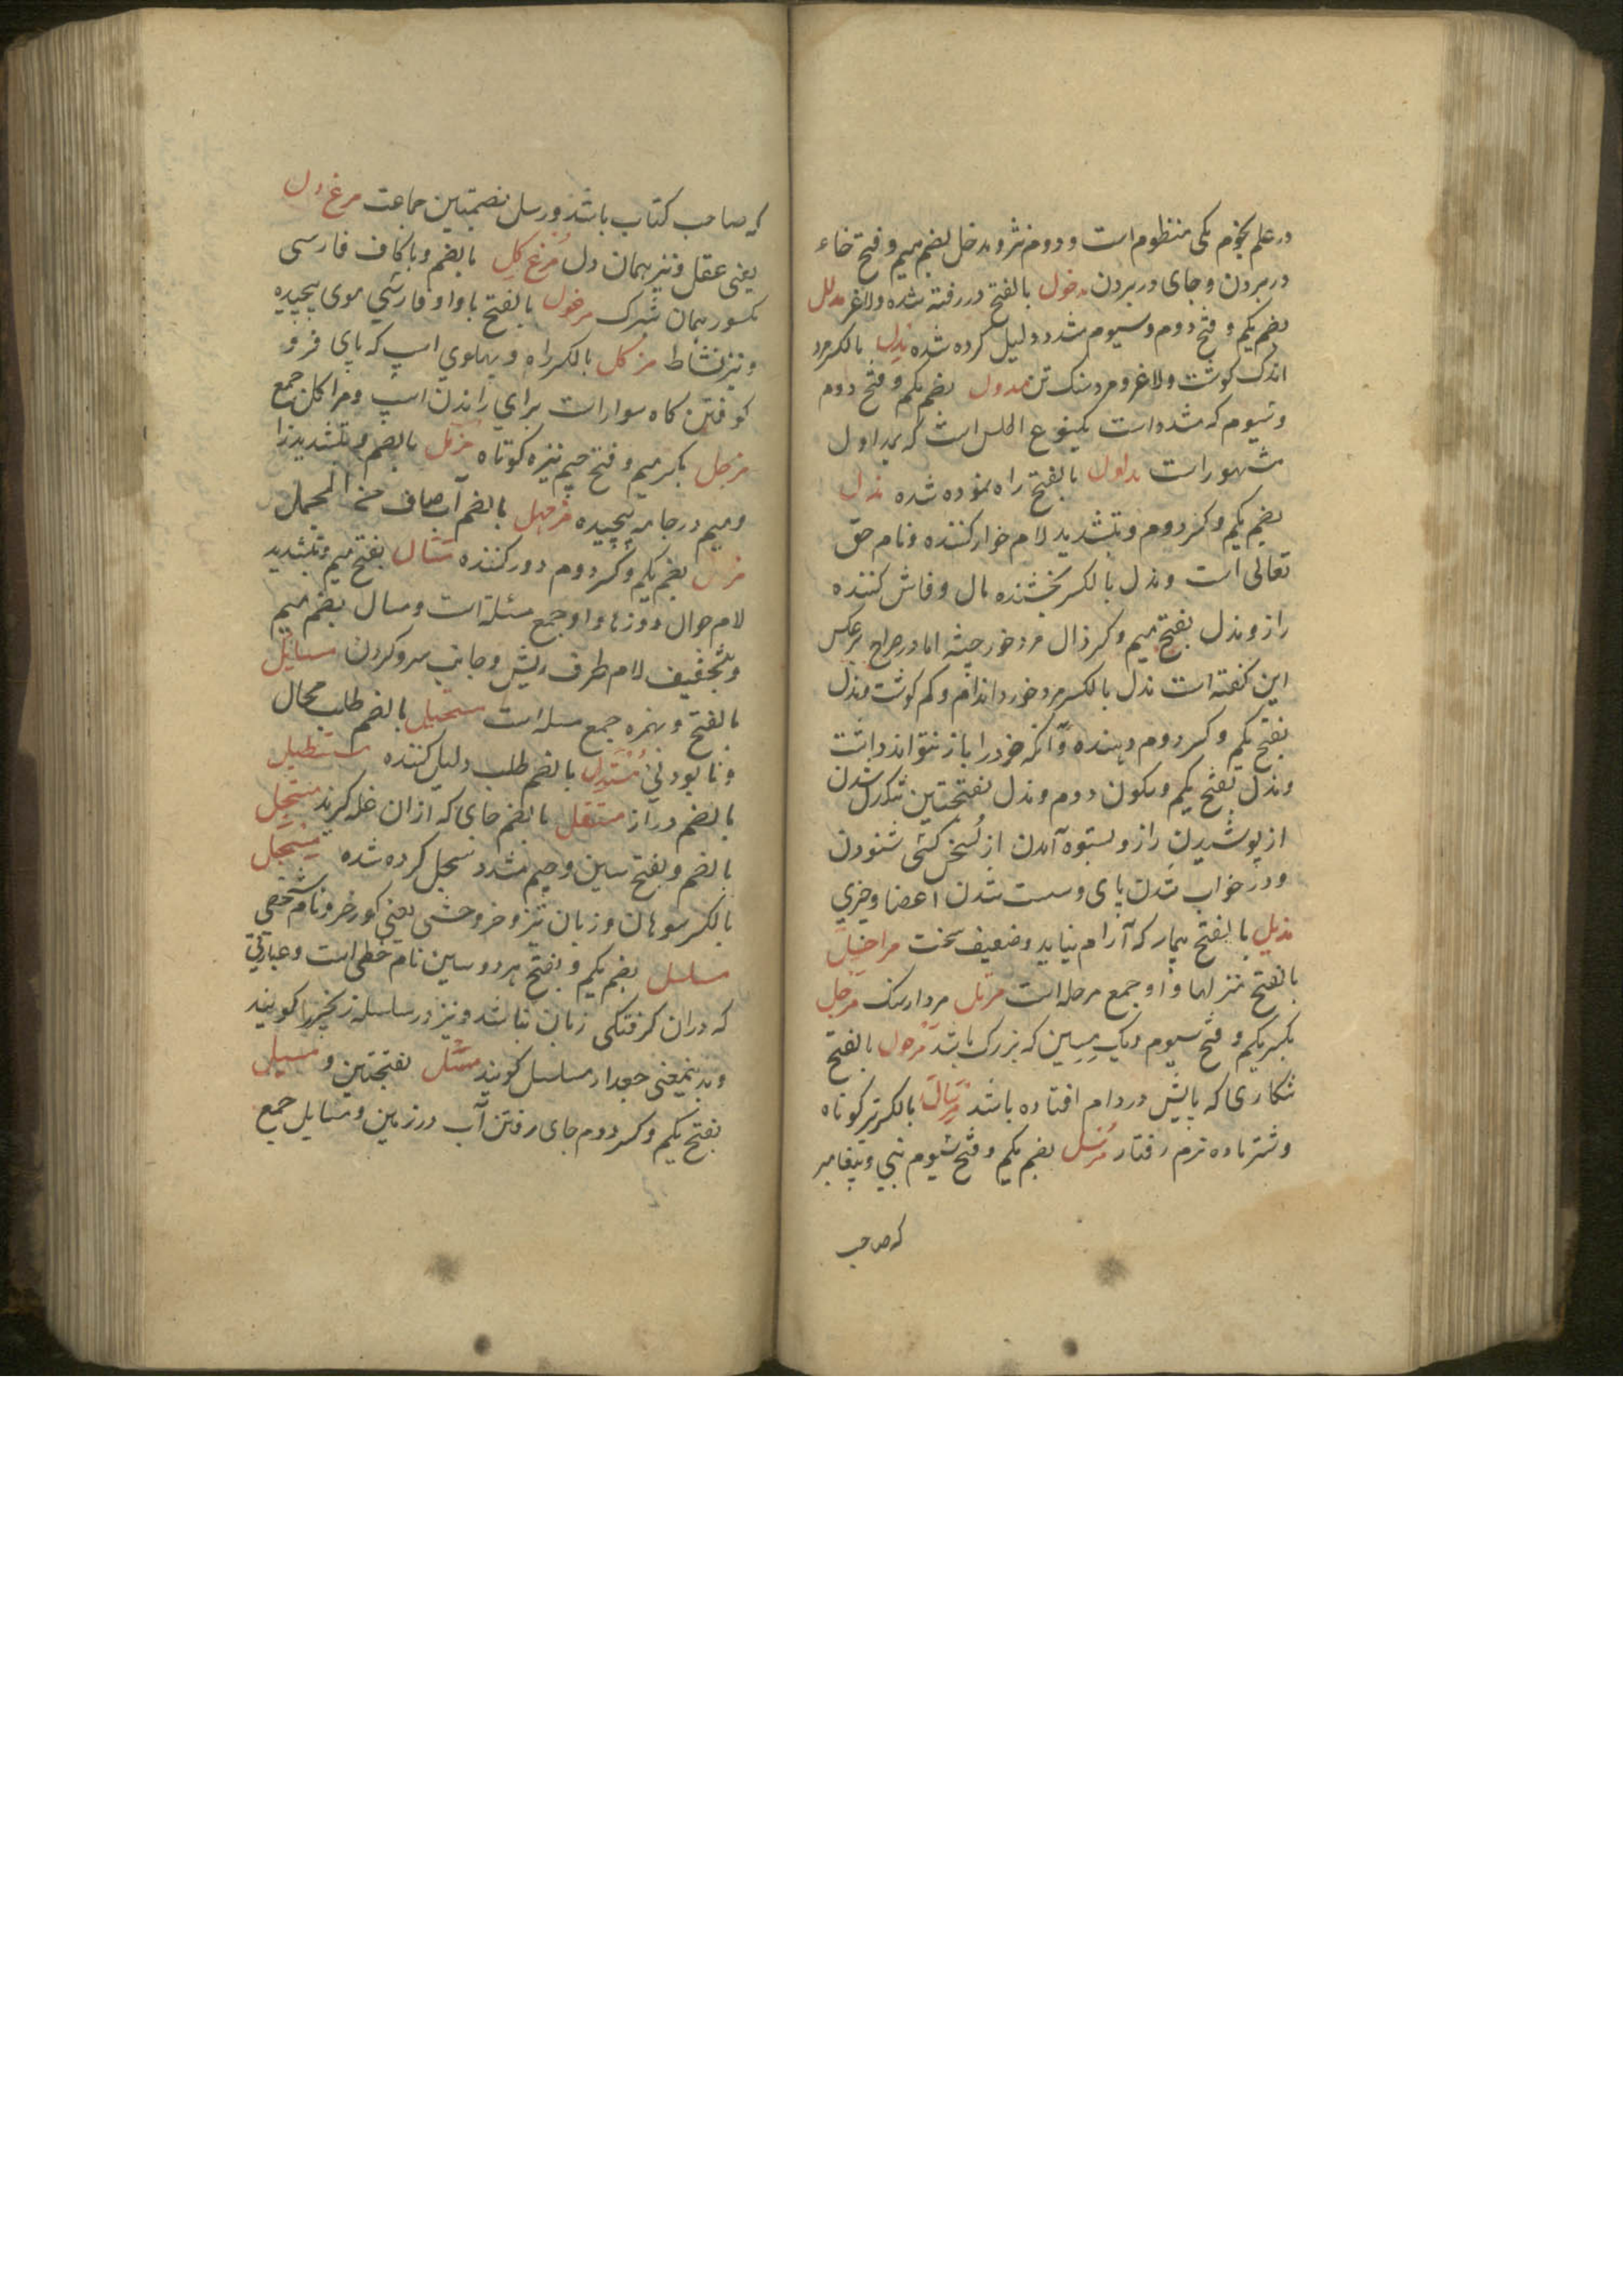 در علم نجوم یکی منظوم است و دوم نثر و مدخل بضم میم و فتح خاء
در بردن و جای در بردن مدخول بالفتح در رفته شده و لاغر مدلل
بضم یکم و فتح دوم و سیوم مشدد دلیل کرده شده بالکسر مرد
اندک گوشت و لاغر و مرد سبک تن مدول بضم یکم و فتح دوم
و سیوم که مشدد است یکنوع اطلس است که بمداول
مشهور است مدلول بالفتح راه نموده شده مذل
بضم یکم و کسر دوم و تشدید لام خوار کننده و نام حق
تعالی است و مذل بالکسر بخشنده مال و فاش کننده
راز و مذل بفتح میم و کسر ذال مرد خورد جثه اما در صراح برعکس
این گفته است مذل بالکسر مرد خورد اندام و کم گوشت و مذل
بفتح یکم و کسر دوم دهنده و آنکه خود را باز نتواند داشت
و مذل بفتح یکم و سکون دوم و مذل بفتحتین تنگدل شدن
از پوشیدن راز و بستوه آمدن از سخن کسی شنودن
و در خواب شدن پای و سست شدن اعضا و چیزی
مذیل بالفتح بیمار که آرام نیابد و ضعیف سخت مراحیل
بالفتح منزلها و او جمع مرحله است مرتل مردارسنک مرجل
بکسر یکم و فتح سیوم دیک مسین که بزرک باشد مرحول بالفتح
شکاری که پایش در دام افتاده باشد بالکسر تیر کوتاه
و شتر ماده نرم رفتار مرسل بضم یکم و فتح سیوم نبی و پیغامبر
که صاحب
که صاحب کتاب باشد و رسل بضمتین جماعت مرغ دل
یعنی عقل و نیز همان دل مرغ گل بالضم و با کاف فارسی
مکسور همان شبرک مرغول بالفتح با واو فارسی موی پیچیده
و نیز نشاط مرکل بالکسر راه و پهلوی اسپ که پای فرو
کوفتن گاه سوارانست برای راندن اسپ و مراکل جمع
مزجل بکسر میم و فتح جیم نیزه کوتاه مزمل بالضم و بتشدید زا
و میم در جامه پیچیده بالضم آب صاف
بضم یکم و کسر دوم دور کننده بفتح میم و تشدید
لام جوال دوزها و او جمع مسئلة است و مسال بضم میم
و بتخفیف لام طرف ریش و جانب سر و گردن مسایل
بالفتح و بهمزه جمع مسئله است مستحیل بالضم طلب محال
و نابودنی مستدل بالضم طلب دلیل کننده مستطیل
بالضم دراز مستغل بالضم جای که از ان غله گیرند مسجل
بالضم و بفتح سین و جیم مشدد سجل کرده شده مسحل
بالکسر سوهان و زبان تیز و خر وحشی یعنی گورخر و نام شخصی
مسلسل بضم یکم و بفتح هر دو سین نام خطی است و عبارتی
که در ان گرفتگی زبان نباشد و نیز در سلسله زنجیر را گویند
و بدینمعنی جعد را مسلسل گویند بفتحتین و مسیل
بفتح یکم و کسر دوم جای رفتن آب در زمین و مسایل جمع